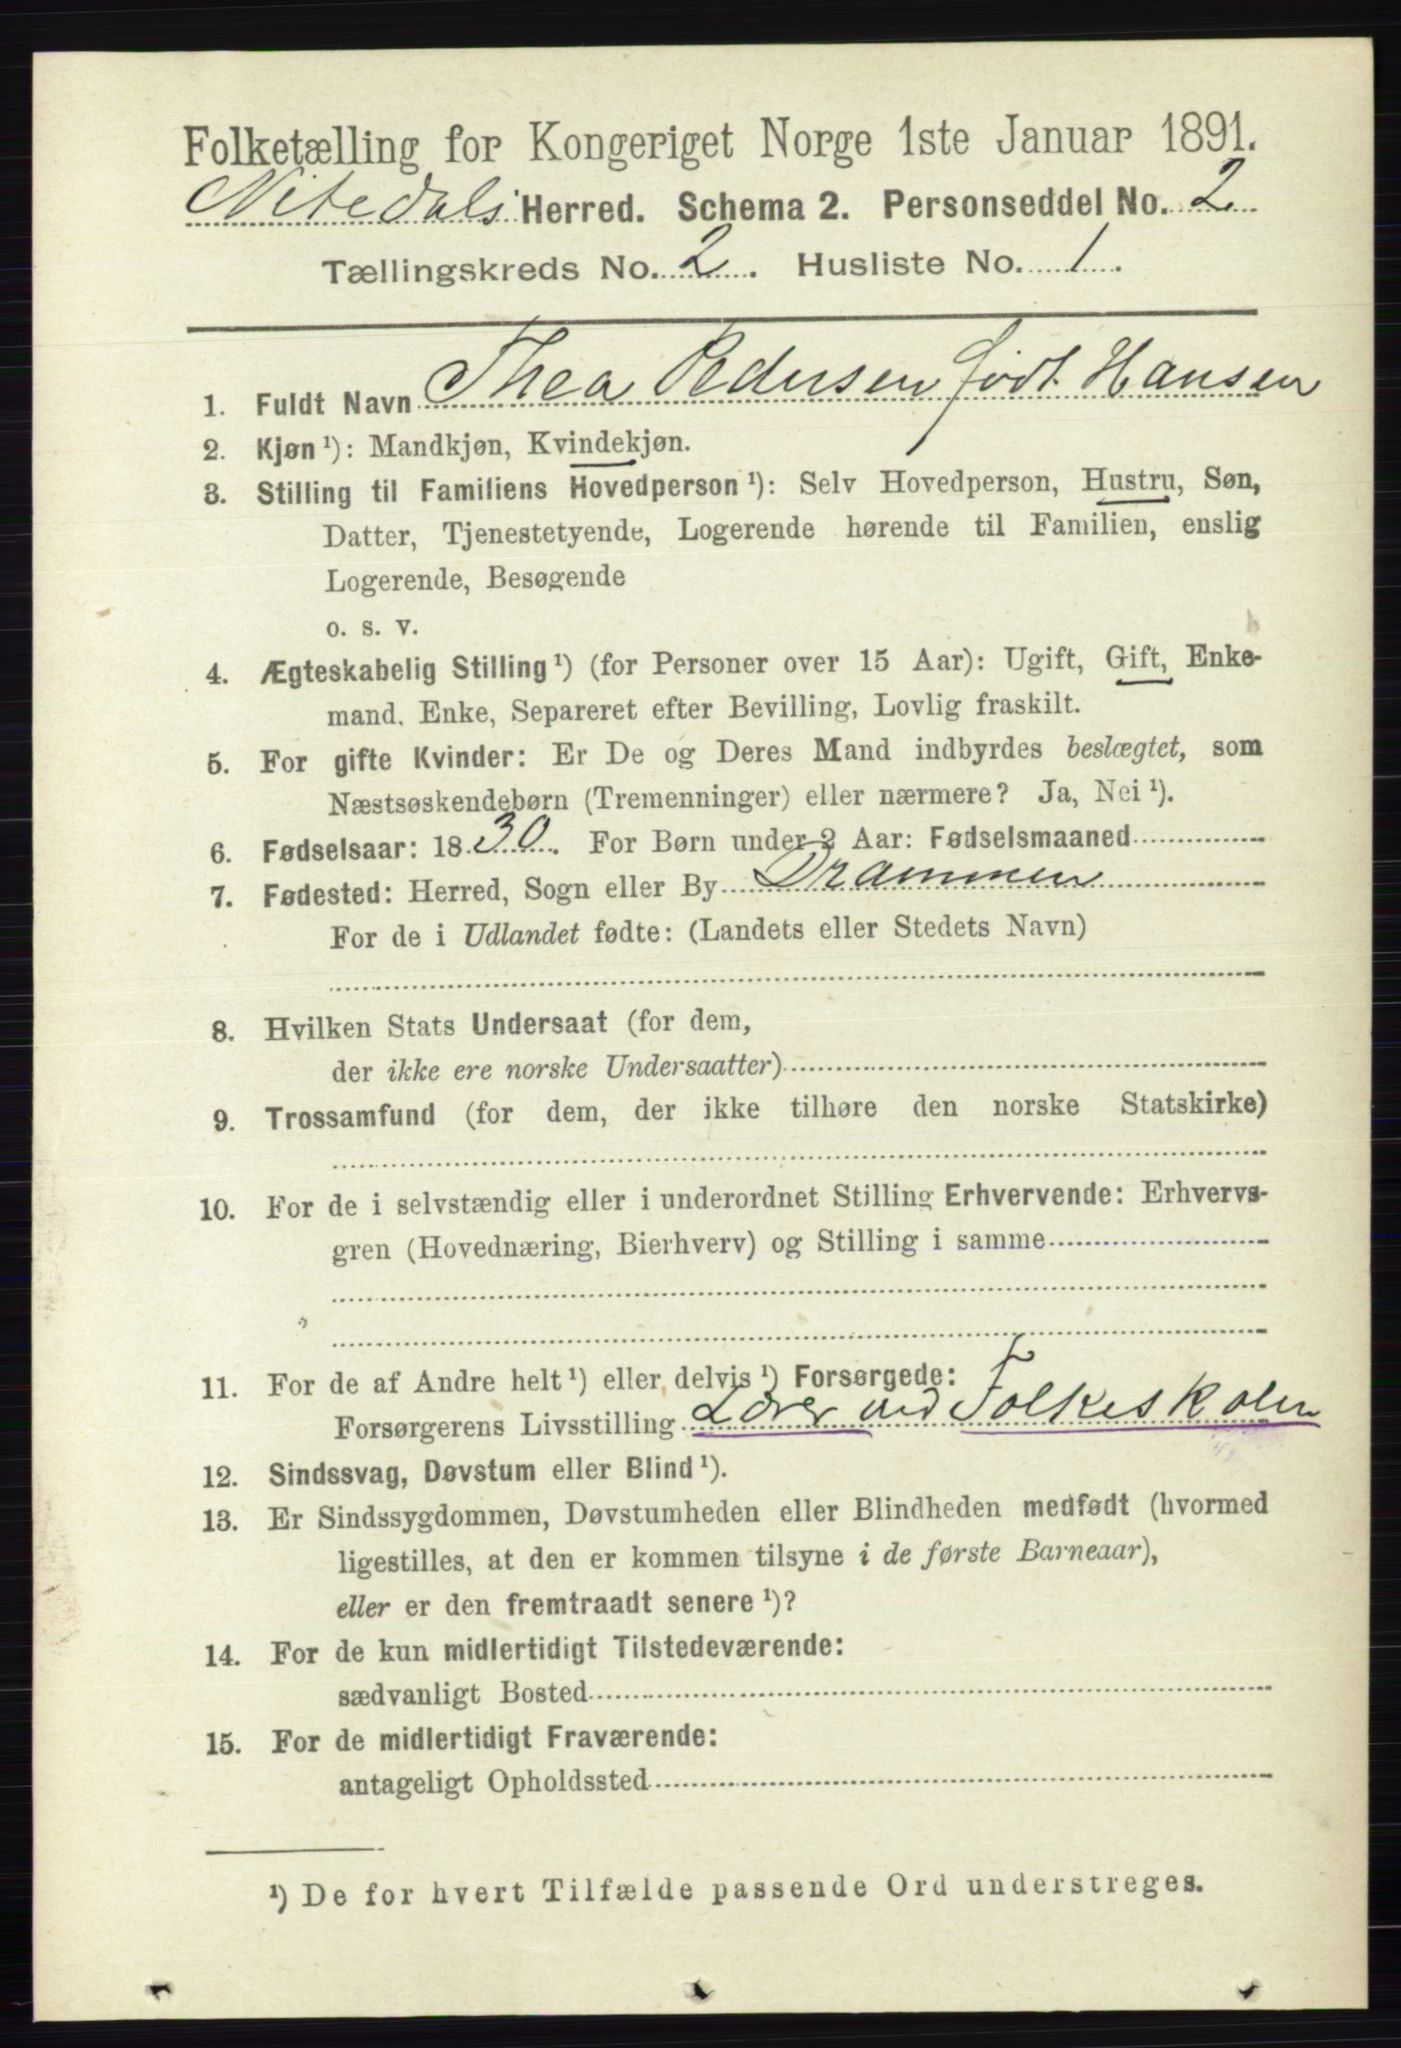 Folketælling for Kongeriget Norge 1ste Januar 1891.
Nitedals Herred. Schema 2. Personseddel No. 2
Tællingskreds No. 2. Husliste No. 1.
1. Fuldt Navn Thea Pedersen født Hansen
2. Kjøn ¹): Mandkjøn, Kvindekjøn.
3. Stilling til Familiens Hovedperson ¹): Selv Hovedperson, Hustru, Søn,
Datter, Tjenestetyende, Logerende hørende til Familien, enslig
Logerende, Besøgende
o. s. v.
4. Ægteskabelig Stilling ¹) (for Personer over 15 Aar): Ugift, Gift, Enke-
mand, Enke, Separeret efter Bevilling, Lovlig fraskilt.
5. For gifte Kvinder: Er De og Deres Mand indbyrdes beslægtet, som
Næstsøskendebørn (Tremenninger) eller nærmere? Ja, Nei ¹).
6. Fødselsaar: 1830. For Børn under 2 Aar: Fødselsmaaned
7. Fødested: Herred, Sogn eller By Drammen
For de i Udlandet fødte: (Landets eller Stedets Navn)
8. Hvilken Stats Undersaat (for dem,
der ikke ere norske Undersaatter)
9. Trossamfund (for dem, der ikke tilhøre den norske Statskirke)
10. For de i selvstændig eller i underordnet Stilling Erhvervende: Erhvervs-
gren (Hovednæring, Bierhverv) og Stilling i samme
11. For de af Andre helt ¹) eller delvis ¹) Forsørgede:
Forsørgerens Livsstilling Lærer ved Folkeskolen
12. Sindssvag, Døvstum eller Blind ¹).
13. Er Sindssygdommen, Døvstumheden eller Blindheden medfødt (hvormed
ligestilles, at den er kommen tilsyne i de første Barneaar),
eller er den fremtraadt senere ¹)?
14. For de kun midlertidigt Tilstedeværende:
sædvanligt Bosted
15. For de midlertidigt Fraværende:
antageligt Opholdssted
¹) De for hvert Tilfælde passende Ord understreges.